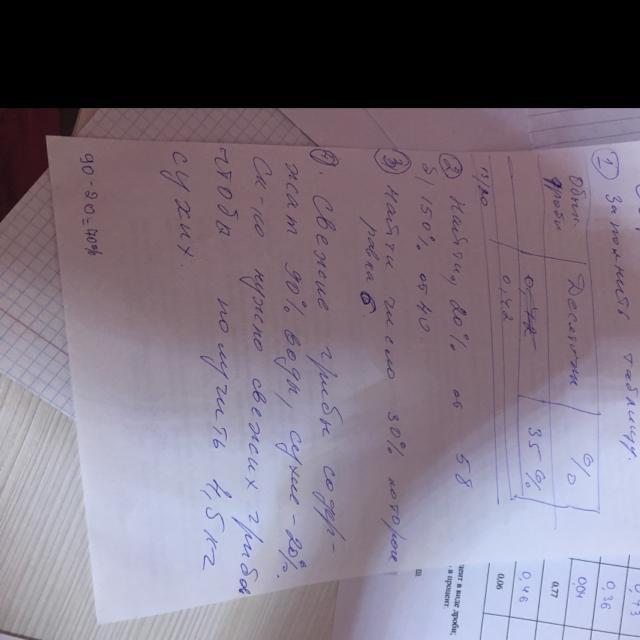 ① Заполнить таблицу.
Обык. дроби | Десятичн | %
0,42 | 35%
1/20
② Найти, 20% от 58
3) 150% от 40.
③ Найти число 30% которых
равна 6
④. Свежие грибы содер-
жат 90% воды, сухие - 20%.
Ск-ко нужно свежих грибов
чтобы получить 4,5 кг
сухих.
0,36
0,04
0,77
0,46
0,06